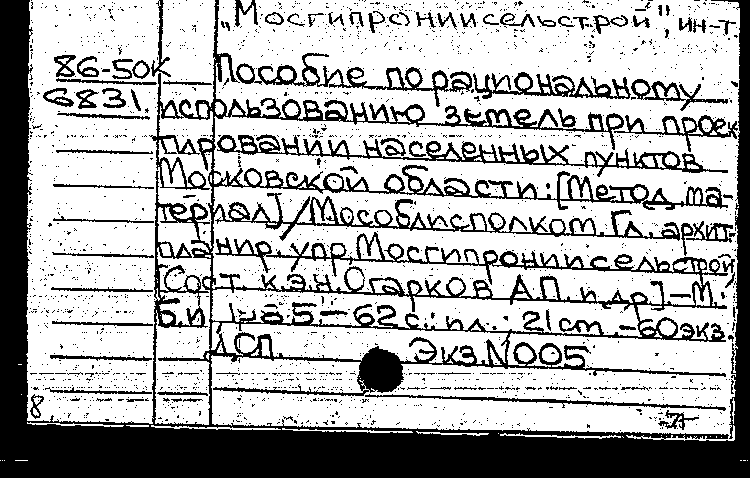 „Мосгипрониисельстрой", ин-т.
86-50к Пособие по рациональному
6831. использованию земель при проек
тировании населенных пунктов
Московской области: [Метод. ма-
териал] / Мособлисполком. Гл. архит.-
планир. упр, Мосгипрониисельстрой
[Сост. к.э.н. Огарков А.П. и др.] – М.:
Б.и. – 62 с.: пл.; 21 cm. – 60 экз.
ДСП. Экз. N005
8 71